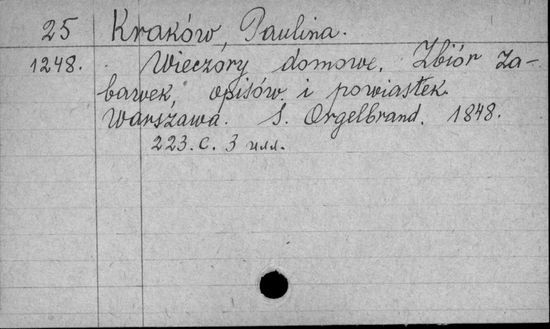 25 Kraków, Paulina.
1248. Wieczóry domowe. Zbiór za-
bawek, opisów i powiastek.
Warszawa. S. Orgelbrand. 1848.
223. с. 3 илл.